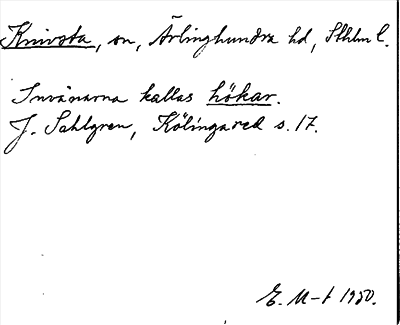 Knivsta, sn, Ärlinghundra hd, Sthlm l.
Invånarna kallas hökar.
J. Sahlgren, Kölingared s. 17.
E. M-t 1930.